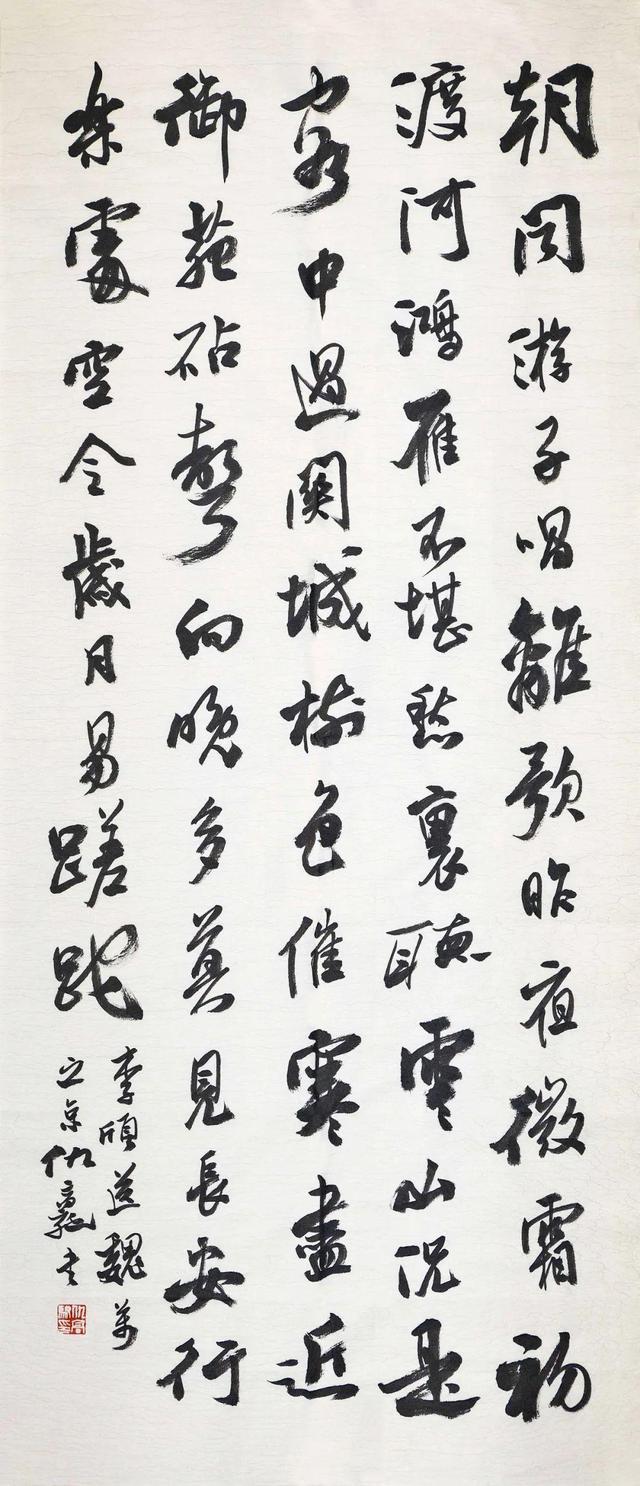 朝聞游子唱離歌昨夜微霜初
渡河鴻雁不堪愁裏聽雲山況是
客中過關城樹色催寒盡近
御苑砧聲向晚多莫見長安行
樂處空令歲月易蹉跎
李頎送魏萬
之京仇高馳書